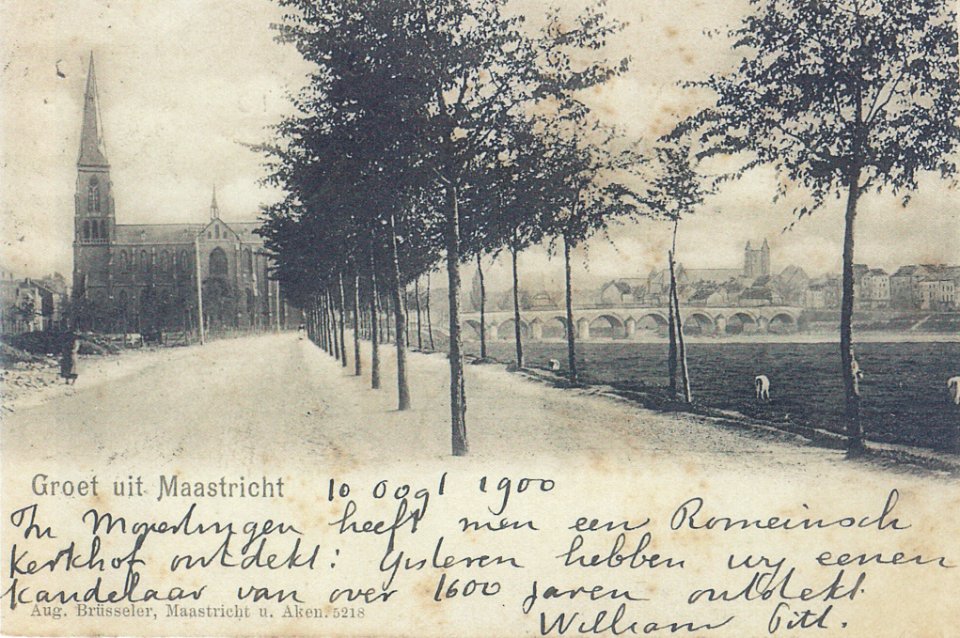 Groet uit Maastricht 10 Oogst 1900
In heeft men een Romeinsch
Kerkhof ontdekt: Gisteren hebben wy eenen
Kandelaar van over 1600 jaren ontdekt.
Aug. Brüsseler, Maastricht u. Aken. 5218
William